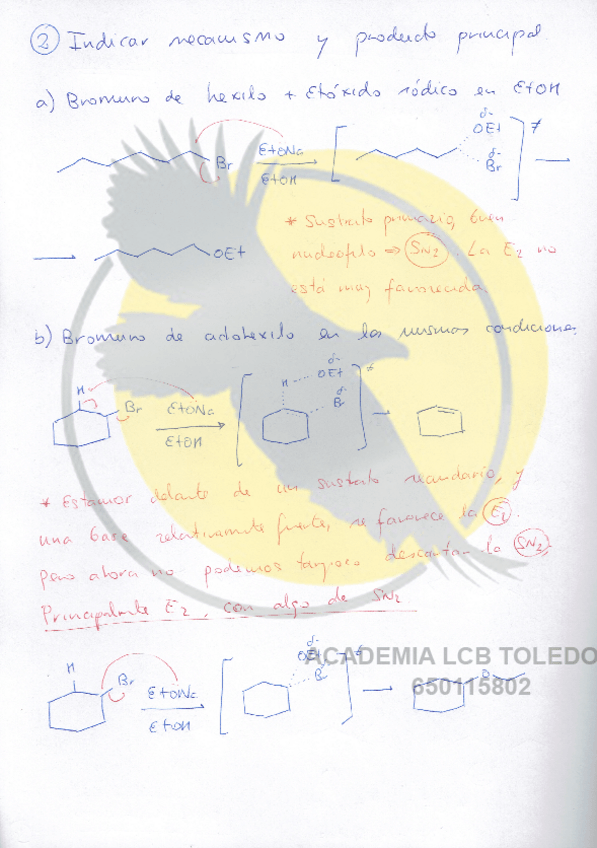 2 Indicar mecanismo y producto principal
a) Bromuro de hexilo + Etóxido sódico en EtOH
Br EtONa EtOH δ- OEt δ- Br ≠
OEt
* Sustrato primario, buen
nucleofilo => SN2. La E2 no
está muy favorecida.
b) Bromuro de ciclohexilo en las mismas condiciones
H Br EtONa EtOH H δ- OEt δ- Br ≠
* Estamos delante de un sustrato secundario, y
una base relativamente fuerte, se favorece la E2.
Pero ahora no podemos tampoco descartar la SN2
Principalmente E2, con algo de SN2
H Br EtONa EtOH δ- OEt δ- Br ≠ O
ACADEMIA LCB TOLEDO
650115802